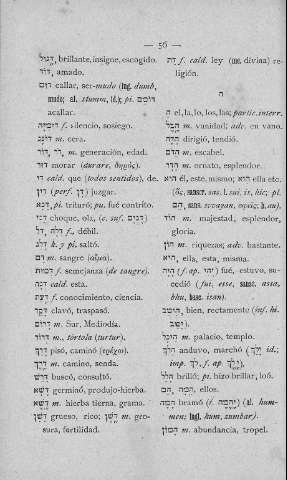 — 56 —
דָּגוּל, brillante, insigne, escogido.
דּוֹד, amado.
דּוּם callar, ser-mudo (ingl. dumb,
mudo; al. stumm, id.); pi. דּוֹמֵם
acallar.
דּוּמִיָּה f. silencio, sosiego.
דּוֹנַג m. cera.
דּוֹר, דֹּר m. generación, edad.
דּוּר morar (durare,
דִּי cald. que (todos sentidos), de.
דִּין (perf. דָּן) juzgar.
דַּכָּא, pi. trituró; pu. fué contrito.
choque, ola, (c. suf.
דַּל, דַּלָּה f. débil.
k. y pi. saltó.
דָּם m. sangre
דְּמוּת f. semejanza (de sangre).
דְּנָה cald. esta.
דַּעַת f. conocimiento, ciencia.
דָּקַר clavó, traspasó
דָּרוֹם m. Sur, Mediodía.
m., tórtola (turtur).
דָּרַךְ pisó, caminó
דֶּרֶךְ m. camino, senda.
דָּרַשׁ buscó, consultó.
דָּשָׁא germinó, produjo-hierba.
דֶּשֶׁא m. hierba tierna, grama.
דָּשֵׁן grueso, rico; דֶּשֶׁן m. gro-
sura, fertilidad.
דָּת f. cald. ley (ing. divina) re-
ligión.
ה
הַ el, la, lo, los, las; partic. interr.
הֶבֶל m. vanidad; adv. en vano.
הָדָה dirigió, tendió.
הֲדֹם m. escabel.
הָדָר m. ornato, esplendor.
הוּא él, este, mismo; הִיא ella etc.
הוֹד m. majestad, esplendor,
gloria.
הוֹן m. riquezas; adv. bastante.
הִיא, ella, esta, misma.
הָיָה (f. ap. יְהִי) fué, estuvo, su-
cedió
הֵיטֵב, bien, rectamente (inf. hi.
יָטַב).
הֵיכָל m. palacio, templo.
הָלַךְ anduvo, marchó (יָלַךְ id.;
imp. לֵךְ, f. ap. וַיֵּלֶךְ)
הָלַל brilló; pi. hizo brillar, loó.
הֵם, הֵמָּה, ellos.
הָמָה bramó (f. יֶהֱמֶה) (al. hum-
men; ingl. hum, zumbar).
הָמוֹן m. abundancia, tropel.